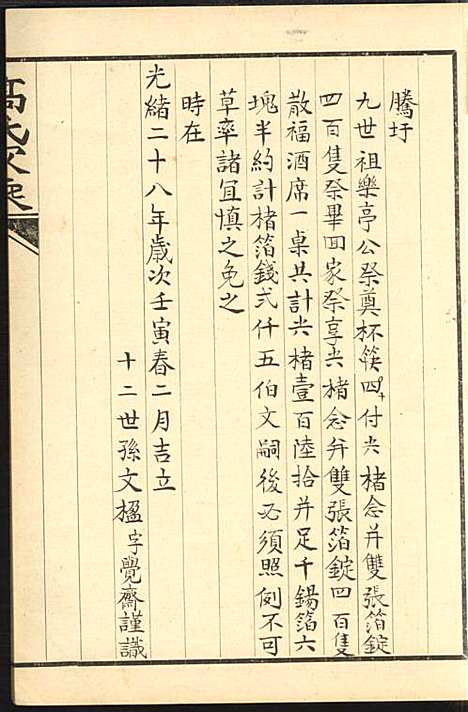 騰圩
九世祖樂亭公祭奠杯筷四付尖楮念并雙張箔錠
四百隻祭畢回家祭享尖楮念并雙張箔錠四百隻
散福酒席一桌共計尖楮壹百陸拾并足千錫箔六
塊半約計楮箔錢弍仟五伯文嗣後必須照例不可
草率諸宜慎之免之
時在
光緒二十八年歲次壬寅春二月吉立
十二世孫文楹字覺齋謹識